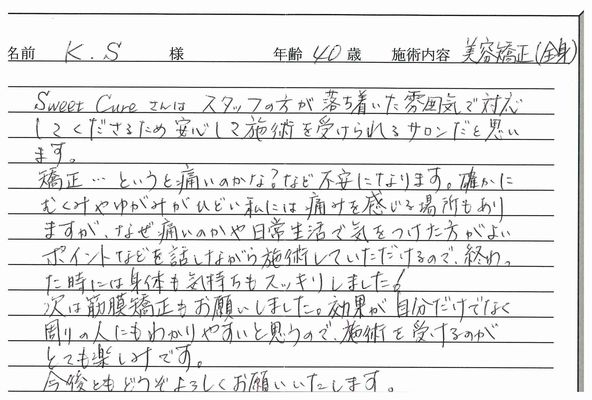 名前 K.S 様 年齢 40 歳 施術内容 美容矯正(全身)
Sweet Cureさんは スタッフの方が 落ち着いた雰囲気で対応
してくださるため安心して施術を受けられるサロンだと思い
ます。
矯正…というと痛いのかな?など不安になります。確かに
むくみやゆがみがひどい私には痛みを感じる場所もあり
ますが、なぜ痛いのかや日常生活で気をつけた方がよい
ポイントなどを話しながら施術していただけるので、終わっ
た時には身体も気持ちもスッキリしました!
次は筋膜矯正もお願いしました。効果が自分だけでなく
周りの人にもわかりやすいと思うので、施術を受けるのが
とても楽しみです。
今後ともどうぞよろしくお願いいたします。